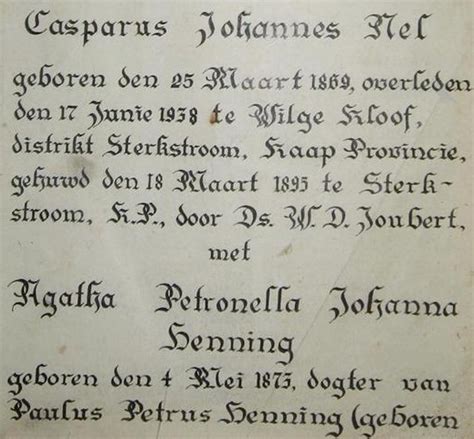 Casparus Johannes Nel
geboren den 25 Maart 1869, overleden
den 17 Junie 1938 te Wilge Kloof,
distrikt Sterkstroom, Kaap Provincie,
gehuwd den 18 Maart 1895 te Sterk-
stroom, K.P., door Ds. W. D. Joubert,
met
Agatha Petronella Johanna
Henning
geboren den 4 Mei 1875, dogter van
Paulus Petrus Henning (geboren